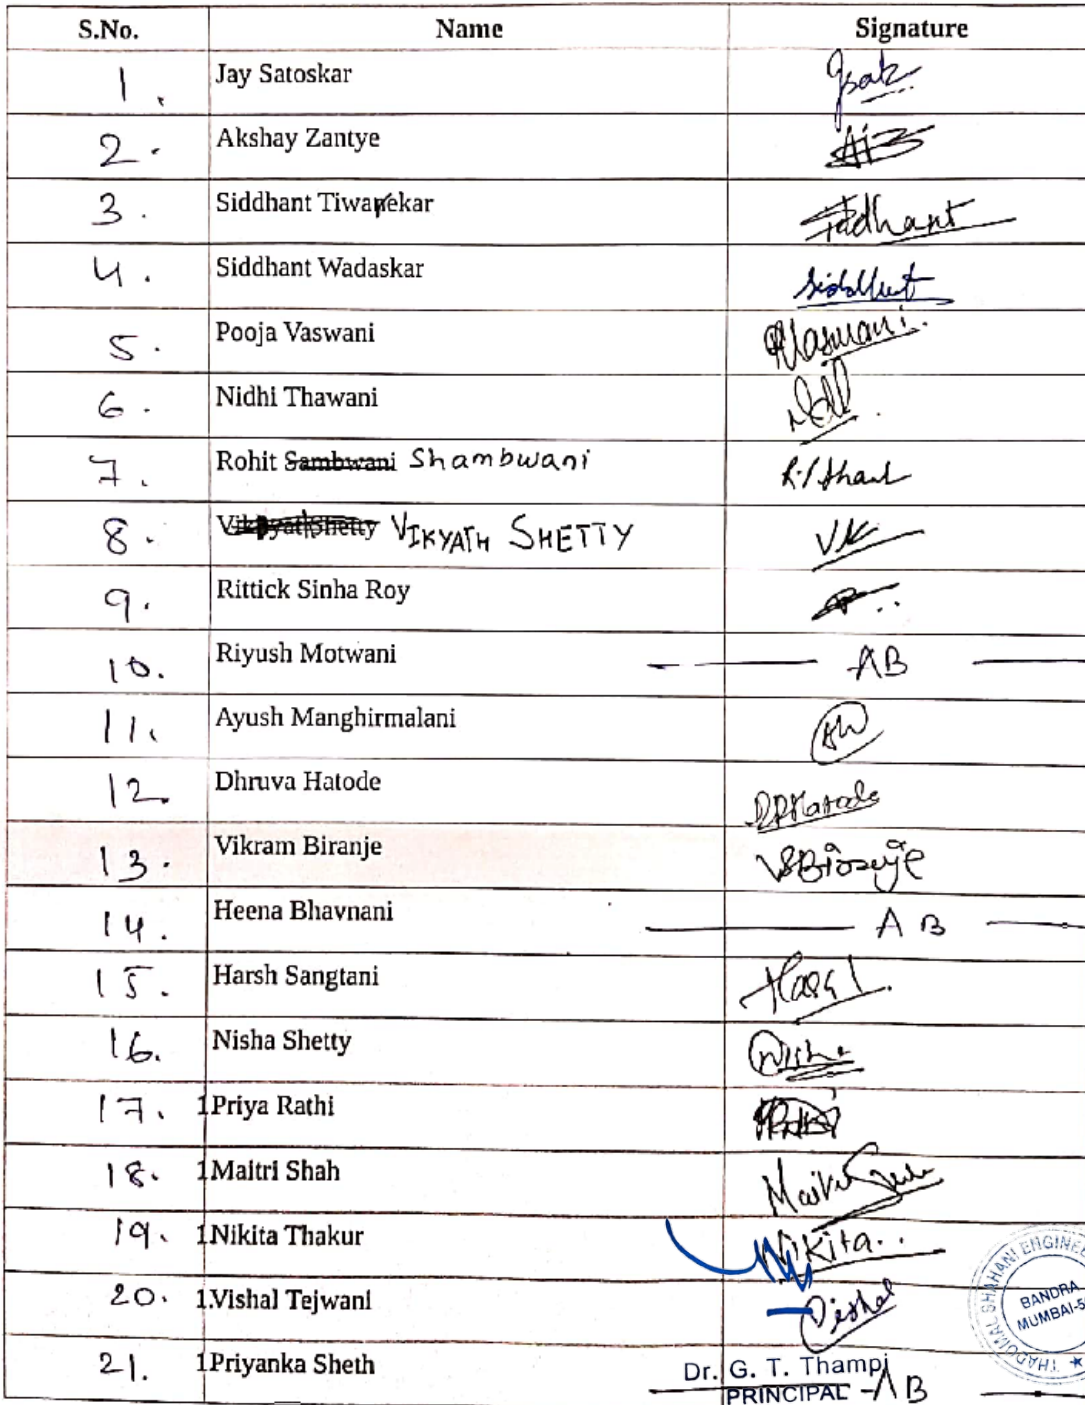 S.No. Name Signature
1. Jay Satoskar Jsatz
2. Akshay Zantye
3. Siddhant Tiwarekar Siddhant
4. Siddhant Wadaskar Siddhant
5. Pooja Vaswani PVaswani.
6. Nidhi Thawani
7. Rohit Sambwani Shambwani
8. VIKYATH SHETTY VK
9. Rittick Sinha Roy
10. Riyush Motwani AB
11. Ayush Manghirmalani
12. Dhruva Hatode
13. Vikram Biranje VSBiranje
14. Heena Bhavnani AB
15. Harsh Sangtani Harsh
16. Nisha Shetty Nisha
17. 1Priya Rathi
18. 1Maitri Shah Maitri
19. 1.Nikita Thakur Nikita..
20. 1.Vishal Tejwani Vishal
21. 1Priyanka Sheth AB
Dr. G. T. Thampi
PRINCIPAL
THADOMAL SHAHANI ENGINEE
BANDRA
MUMBAI-5